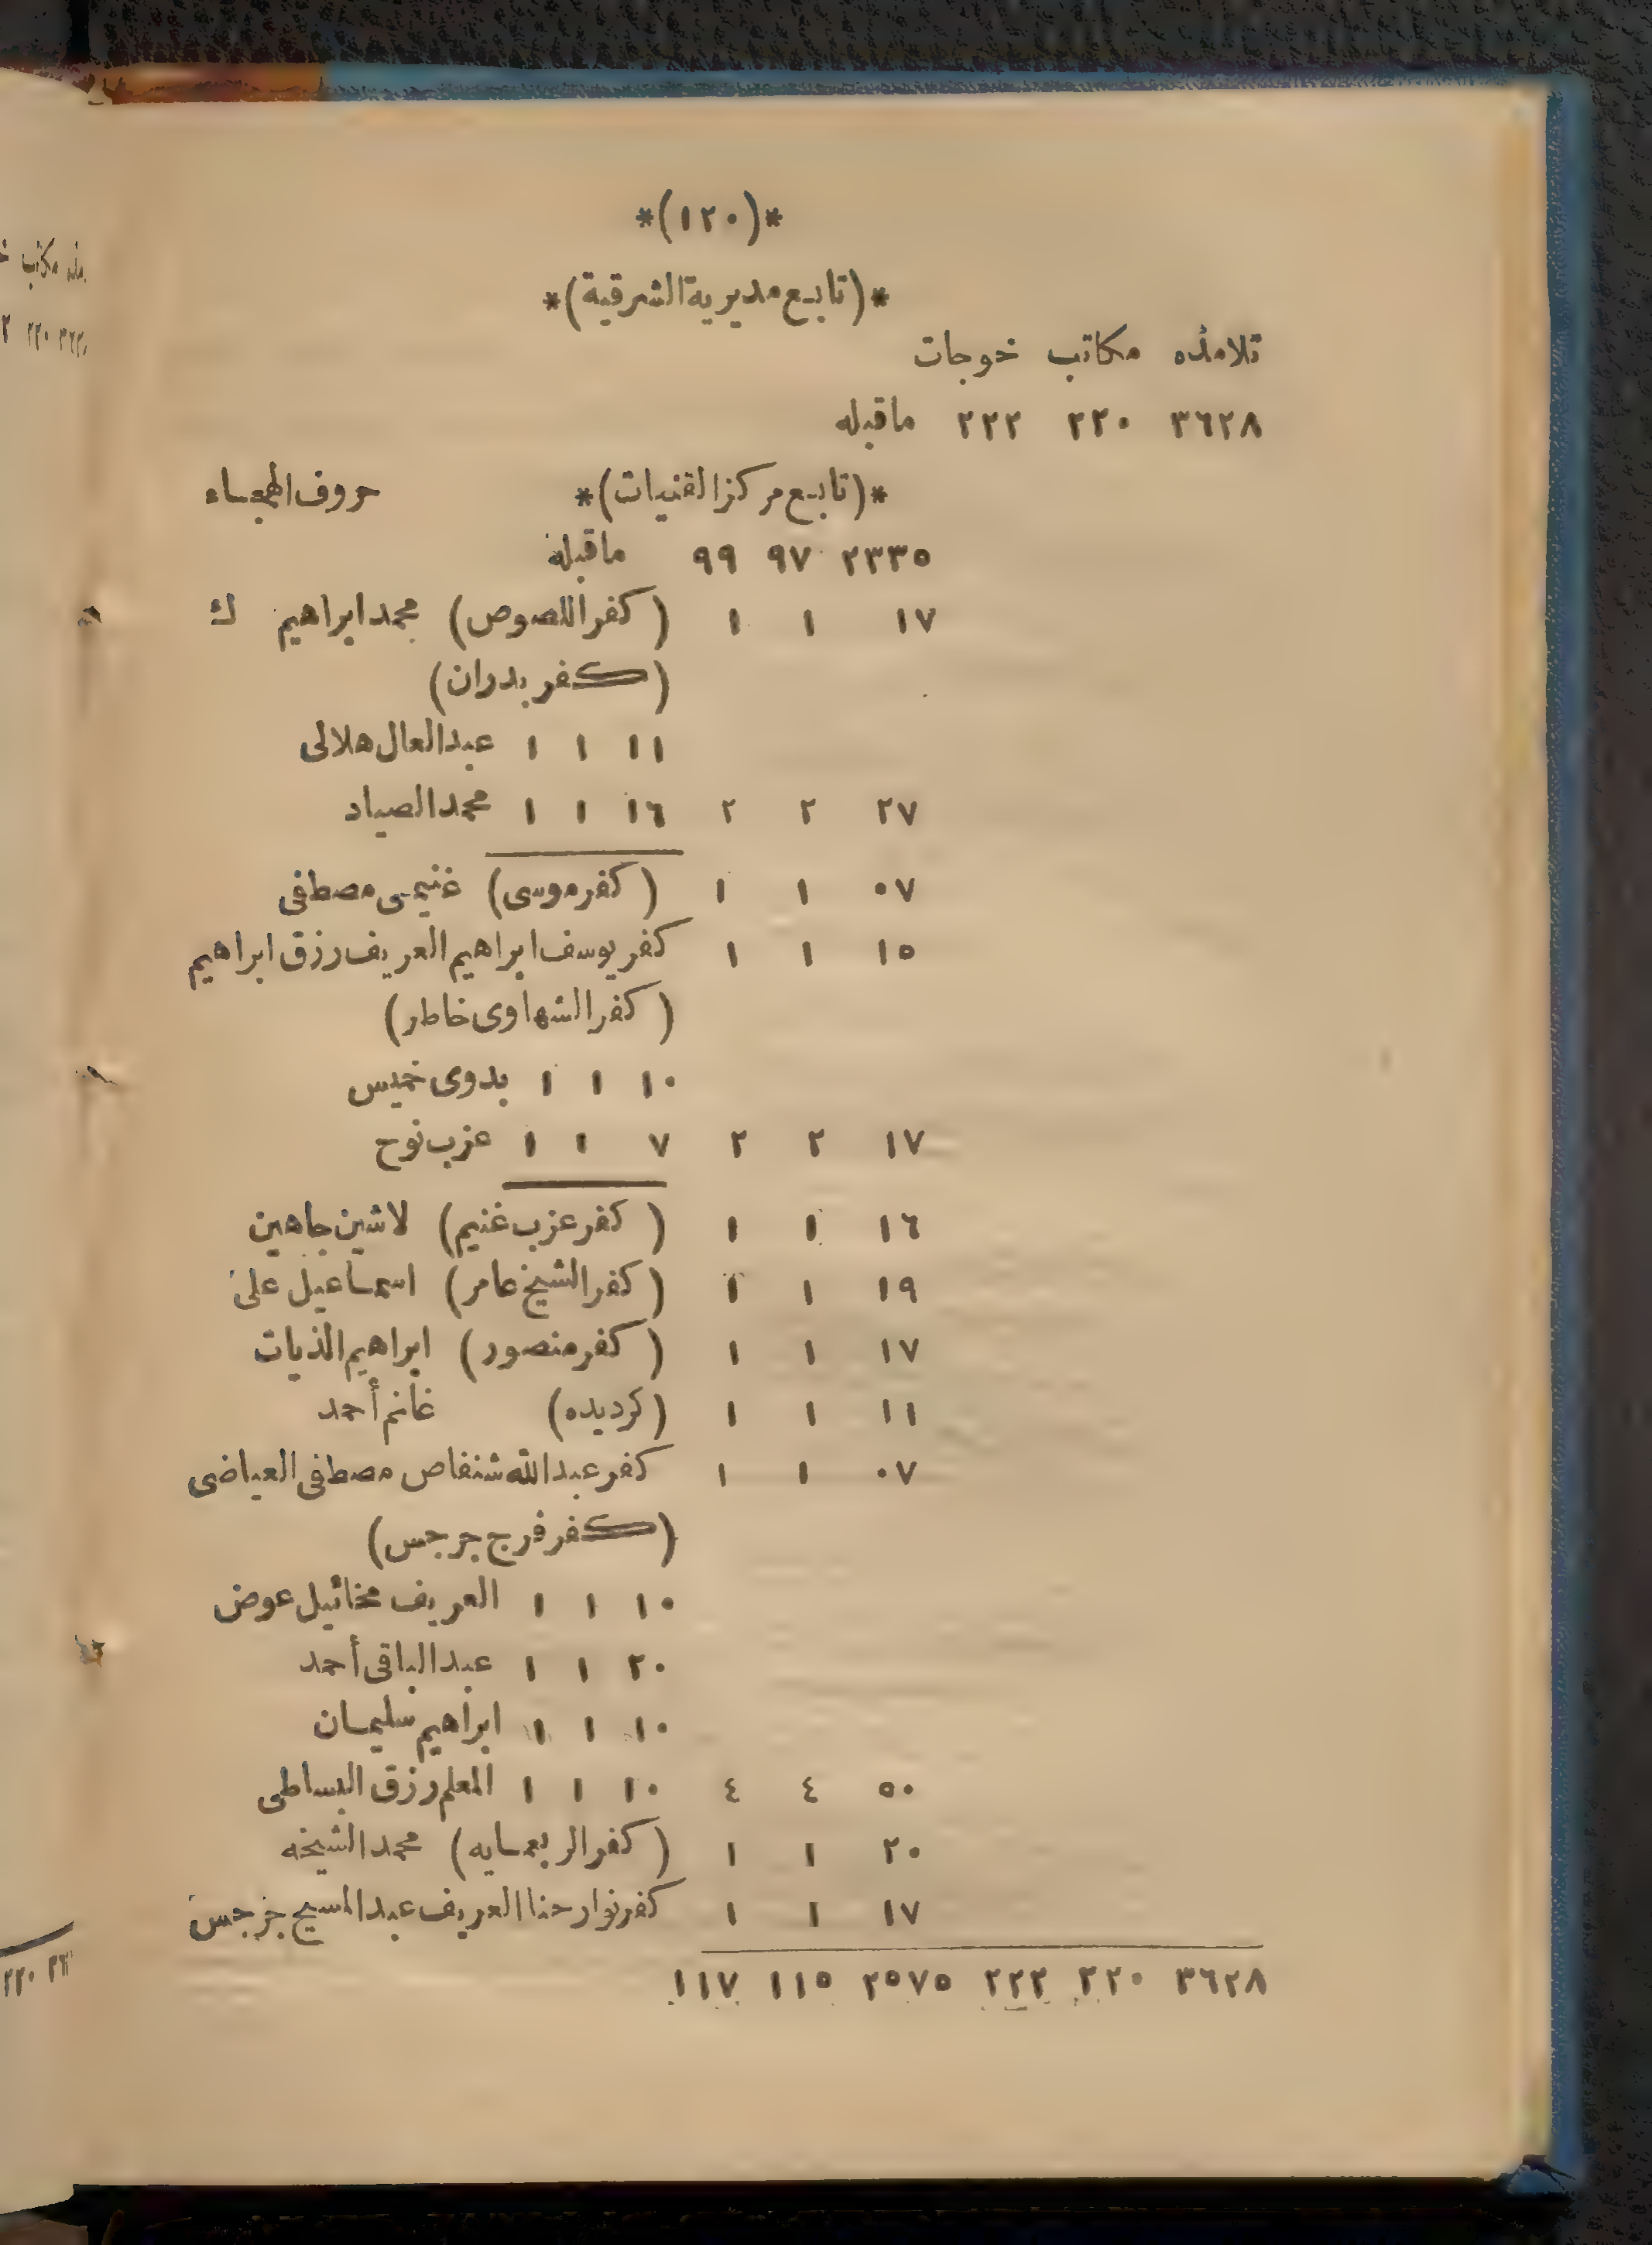 *(١٢٠)*
*(تابع مديرية الشرقية)*
تلامذه مكاتب خوجات
٣٦٢٨ ٢٢٠ ٢٢٢ ماقبله
*(تابع مركز القنيات)* حروف الهجاء
٢٣٣٥ ٩٧ ٩٩ ماقبله
١٧ ١ ١ (كفر اللصوص) محمد ابراهيم ك
(كفر بدران)
١١ ١ ١ عبد العال هلالى
٢٧ ٢ ٢ ١٦ ١ ١ محمد الصياد
٠٧ ١ ١ (كفر موسى) غنيمى مصطفى
١٥ ١ ١ كفر يوسف ابراهيم العريف رزق ابراهيم
(كفر الشهاوى خاطر)
١٠ ١ ١ بدوى خميس
١٧ ٢ ٢ ٧ ١ ١ عزب نوح
١٦ ١ ١ (كفر عزب غنيم) لاشين جاهين
١٩ ١ ١ (كفر الشيخ عامر) اسماعيل على
١٧ ١ ١ (كفر منصور) ابراهيم الذيات
١١ ١ ١ (كرديده) غانم أحمد
٠٧ ١ ١ كفر عبد الله شنفاص مصطفى العياضى
(كفر فرج جرجس)
١٠ ١ ١ العريف مخائيل عوض
٢٠ ١ ١ عبد الباقى أحمد
١٠ ١ ١ ابراهيم سليمان
٥٠ ٤ ٤ ١٠ ١ ١ المعلم رزق البساطى
٢٠ ١ ١ (كفر الربعمايه) محمد الشيخه
١٧ ١ ١ كفر نوار حنا العريف عبد المسيح جرجس
٣٦٢٨ ٢٢٠ ٢٢٢ ٢٥٧٥ ١١٥ ١١٧